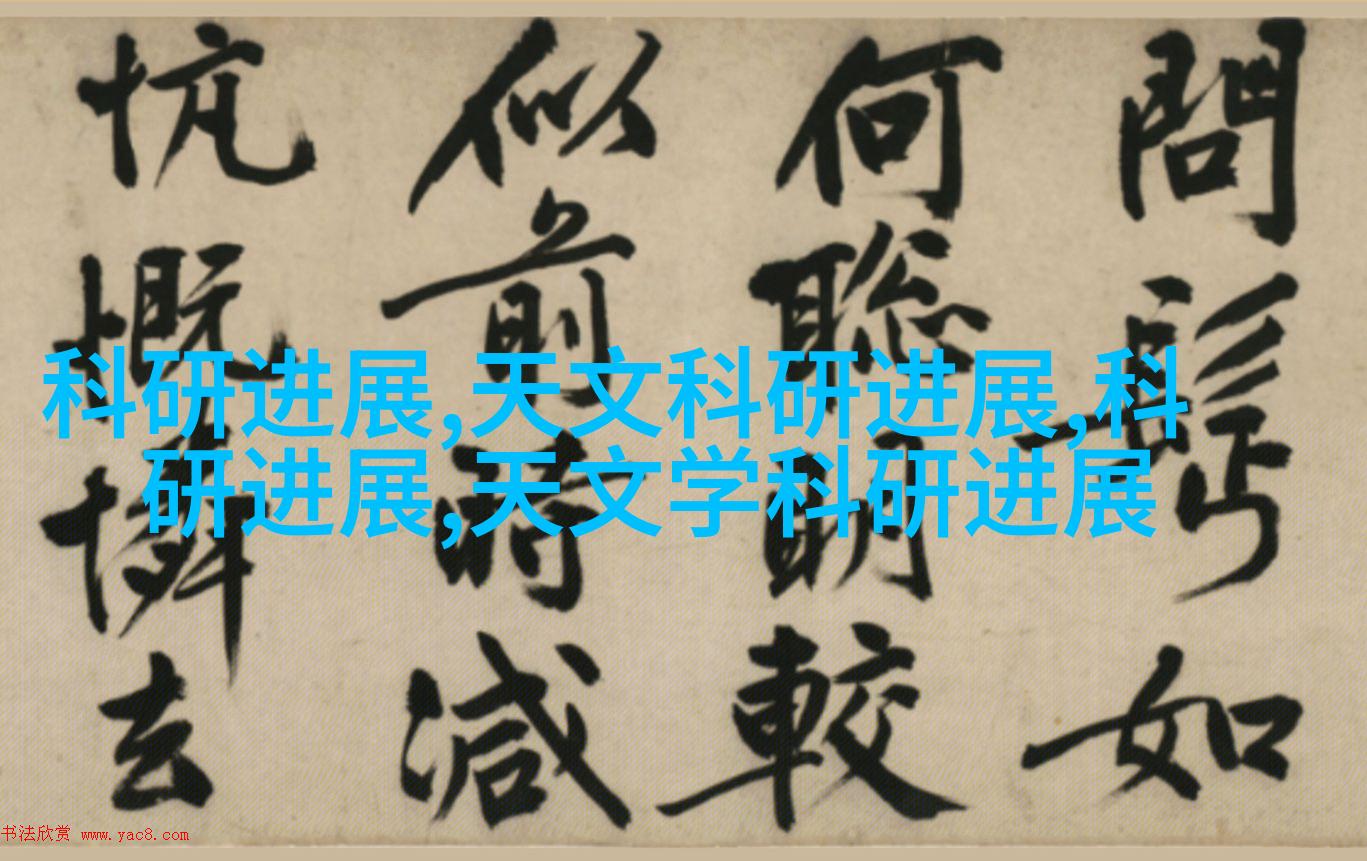 問髩如
何聡明較
似前時減
忼慨憐去
科研进展,天文科研进展,科
研进展,天文学科研进展
书法欣赏 www.yac8.com